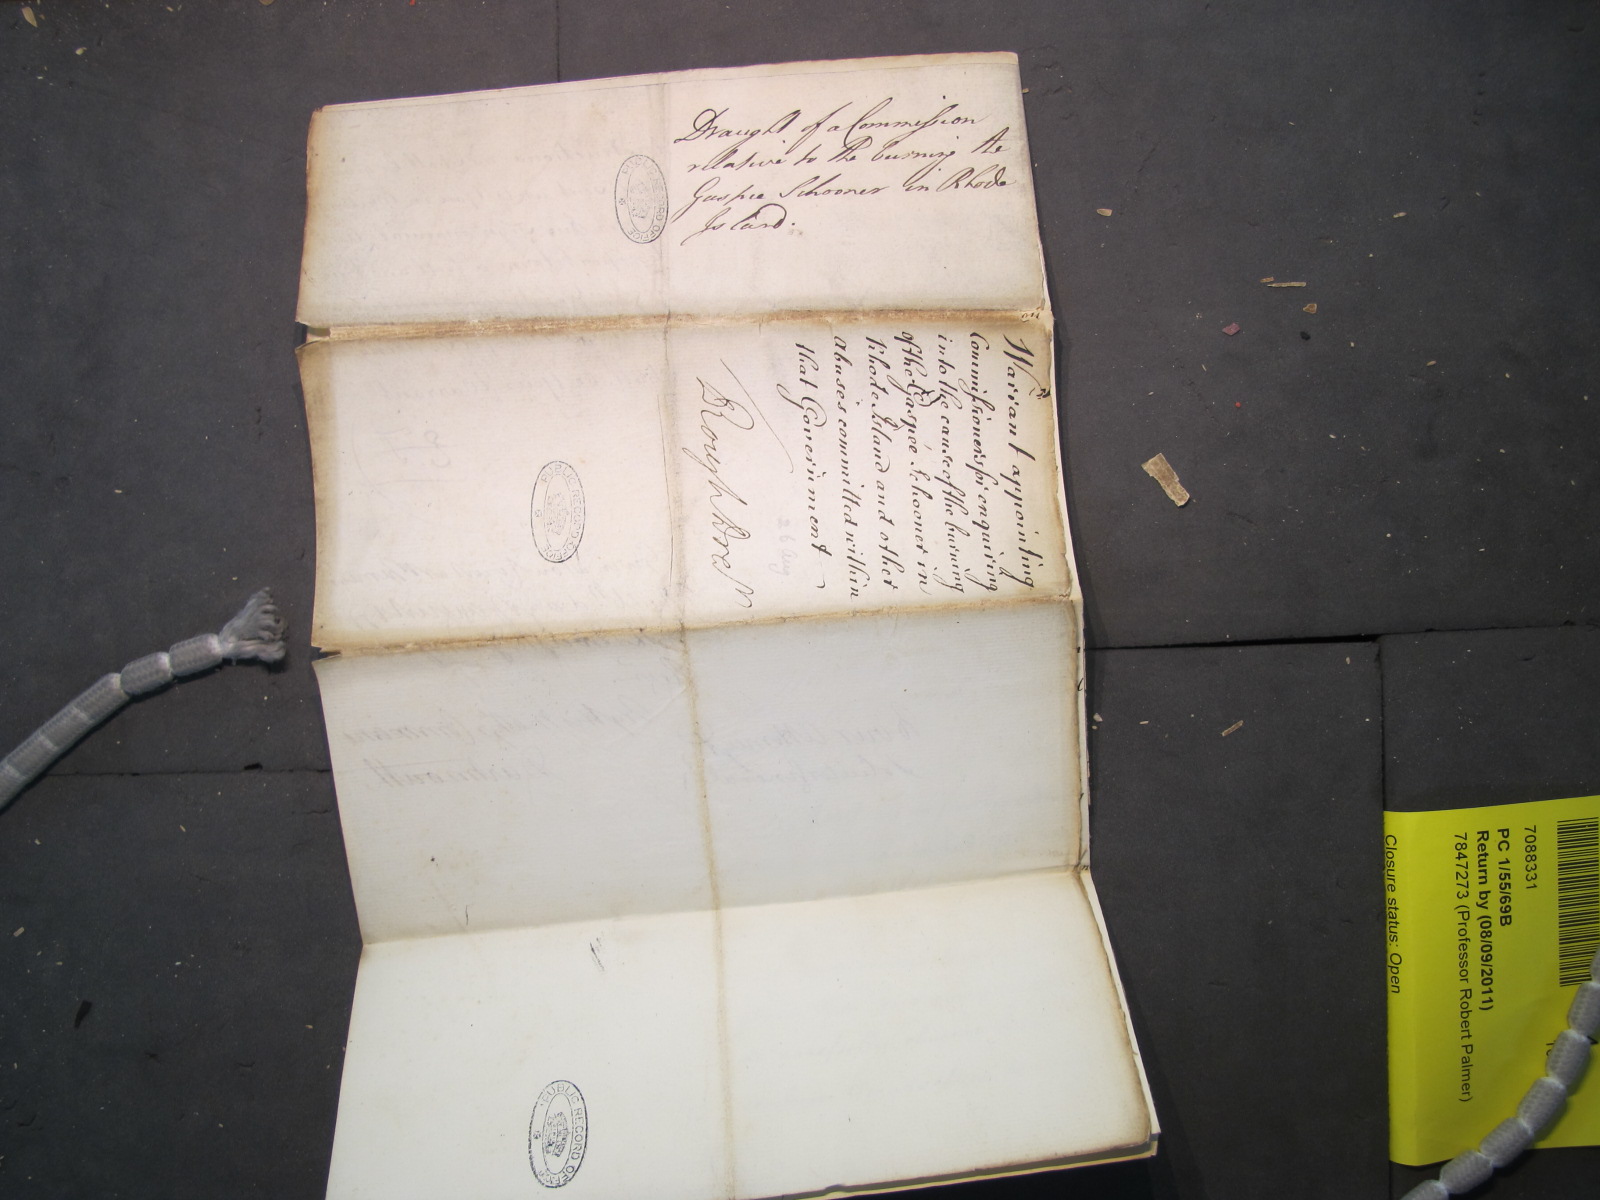 Draught of a Commission
relative to the burning the
Gaspee Schooner in Rhode
Island.
PUBLIC RECORD OFFICE
Warrant appointing
Commissioners for enquiring
into the cause of the burning
of the Gaspée Schooner in
Rhode Island and other
abuses committed within
that Government
26 Aug
Rough Dra
PUBLIC RECORD OFFICE
PUBLIC RECORD OFFICE
7088331
PC 1/55/69B
Return by (08/09/2011)
7847273 (Professor Robert Palmer)
Closure status: Open